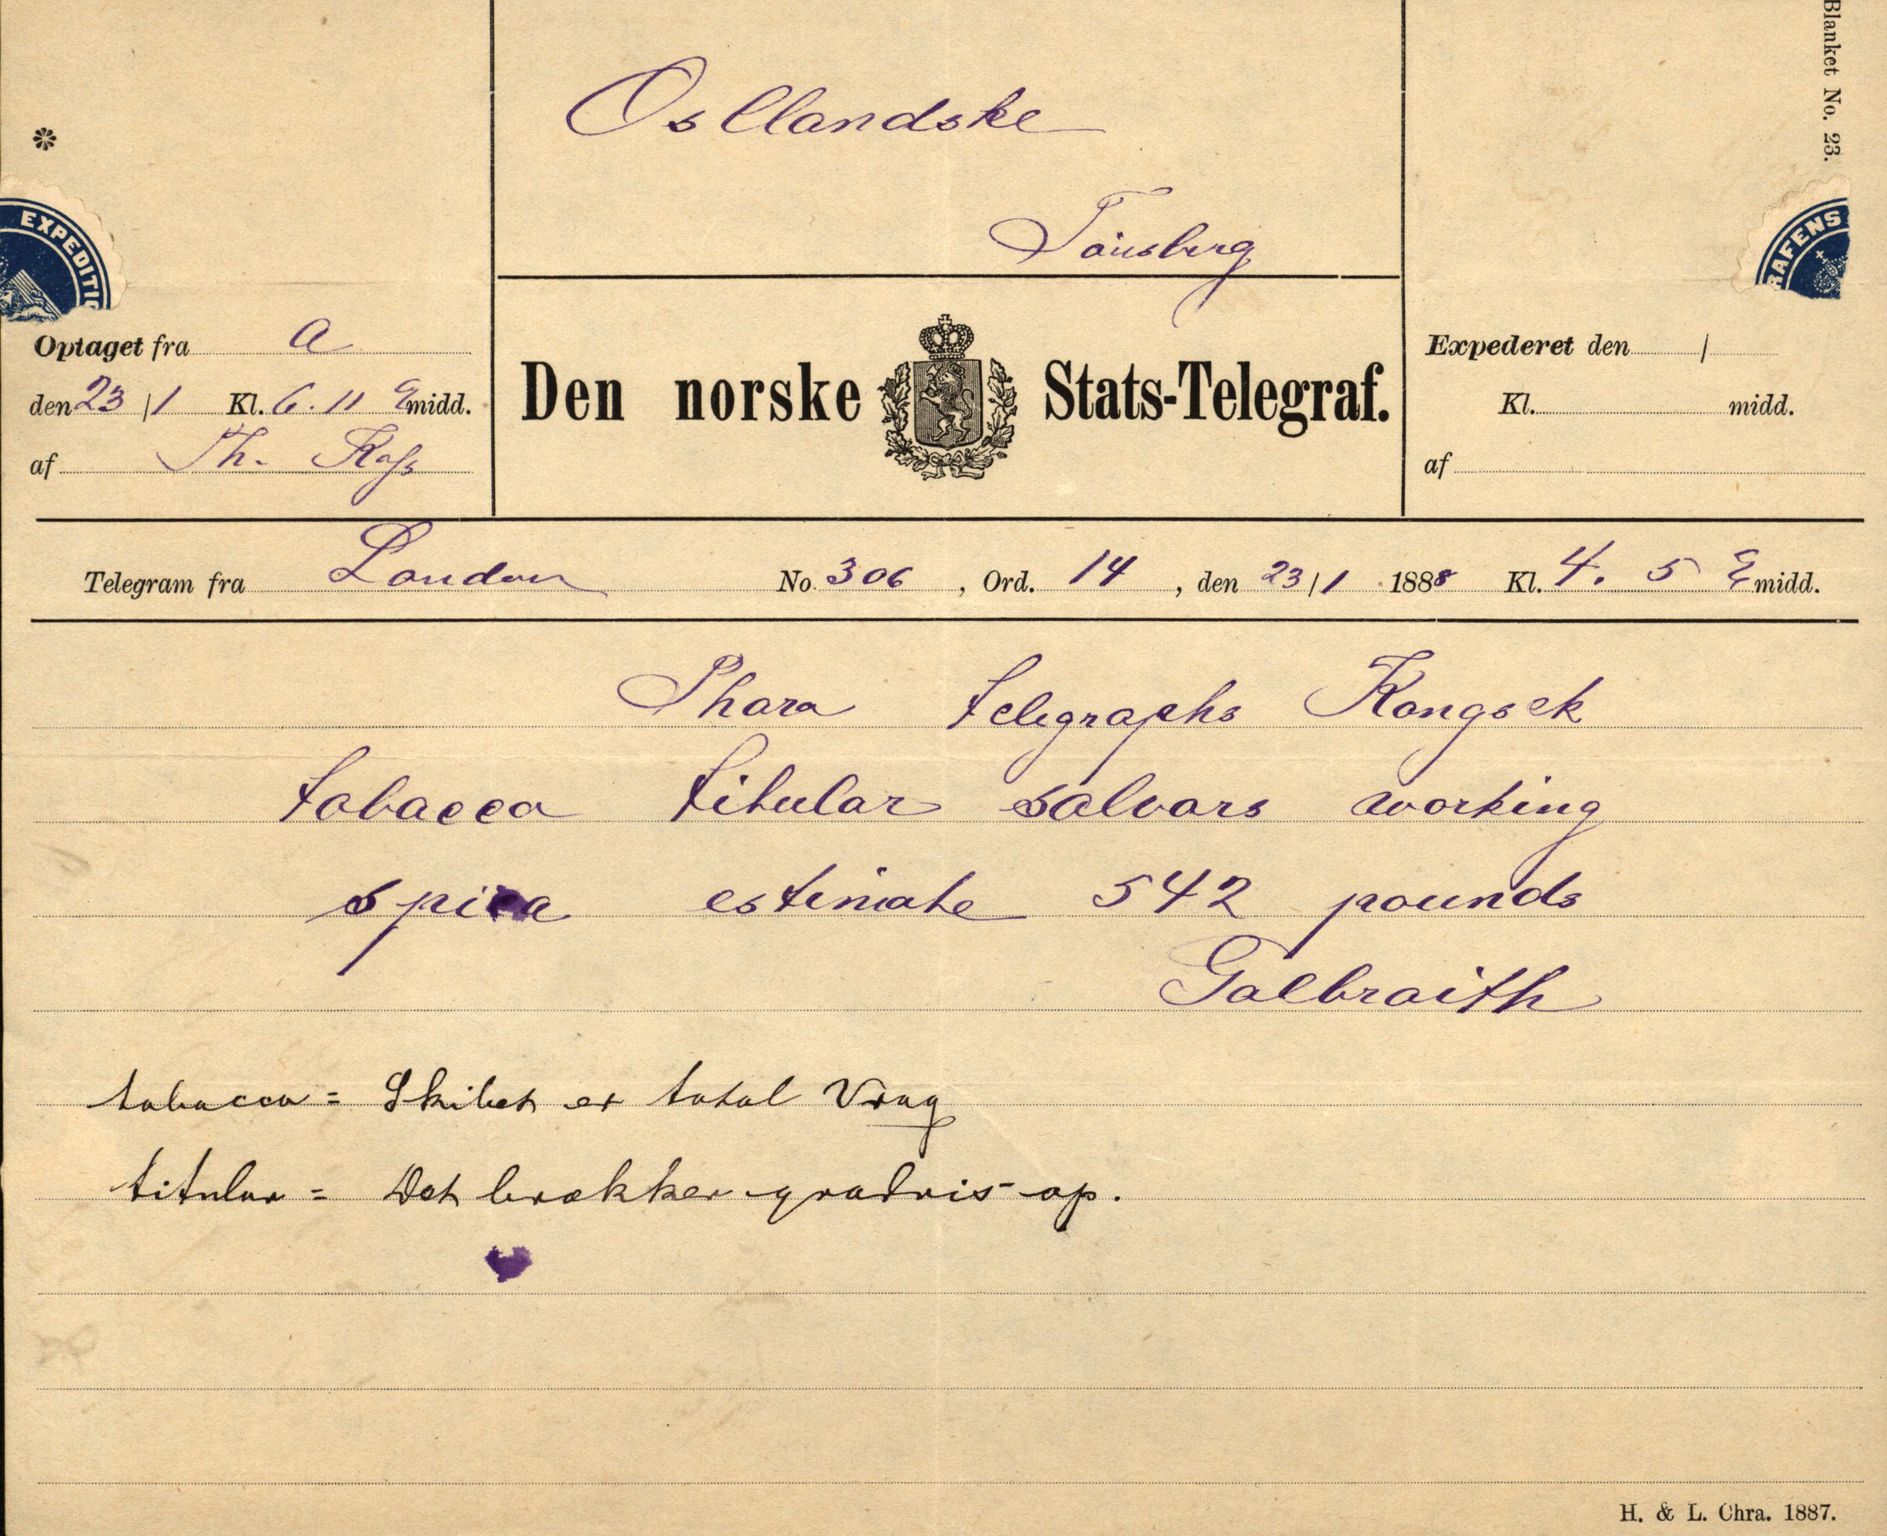 Blanket No. 23.
Østlandske
Tönsberg
EXPEDITIO
RAFENS
Optaget fra A
den 23/1 Kl. 6.11 Emidd.
af Th.
Den norske Stats-Telegraf.
Expederet den /
Kl. midd.
af
Telegram fra London No. 306, Ord. 14, den 23/1 1888 Kl. 4.5 Emidd.
Thora telegraphs Kongsek
tobacco titular salvors working
spica estimate 542 pounds
Galbraith
tobacco = Skibet er total Vrag
titular = Det brækker gradvis op.
H. & L. Chra. 1887.